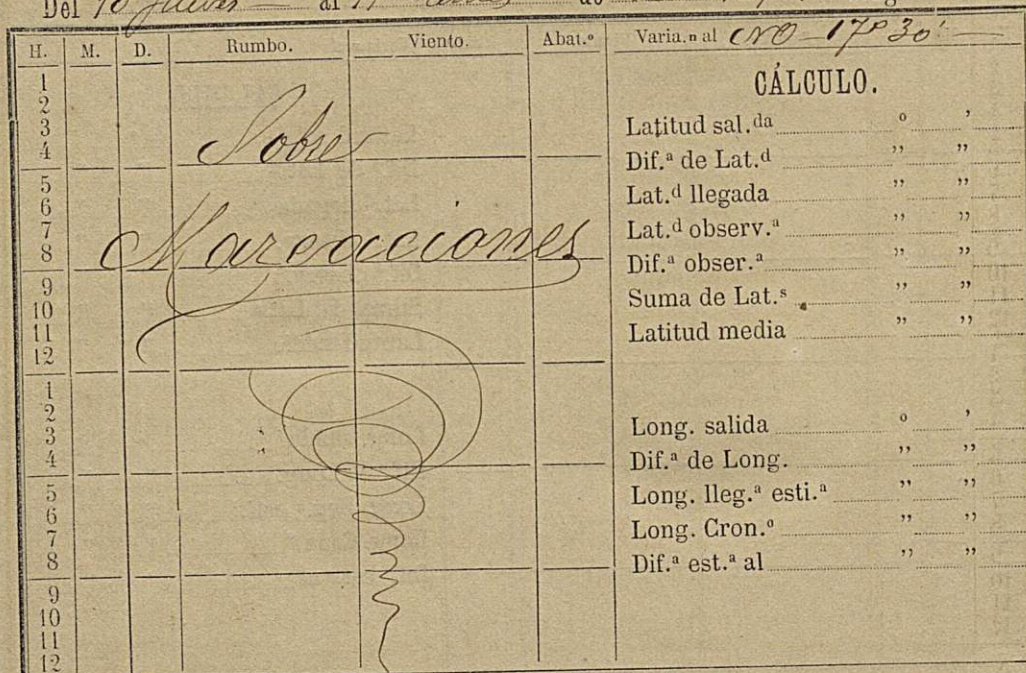 Del 10 Jueves al 11 de
H. M. D. Rumbo. Viento. Abat.º Varia.n al NO 17º 30'
1
2
3
4
5
6
7
8
9
10
11
12
1
2
3
4
5
6
7
8
9
10
11
12
Sobre
Marcacciones
CÁLCULO.
Latitud sal.da º ’
Dif.ª de Lat.d ” ”
Lat.d llegada ” ”
Lat.d observ.ª ” ”
Dif.ª obser.ª ” ”
Suma de Lat.s ” ”
Latitud media ” ”
Long. salida º ’
Dif.ª de Long. ” ”
Long. lleg.ª esti.ª ” ”
Long. Cron.º ” ”
Dif.ª est.ª al ” ”